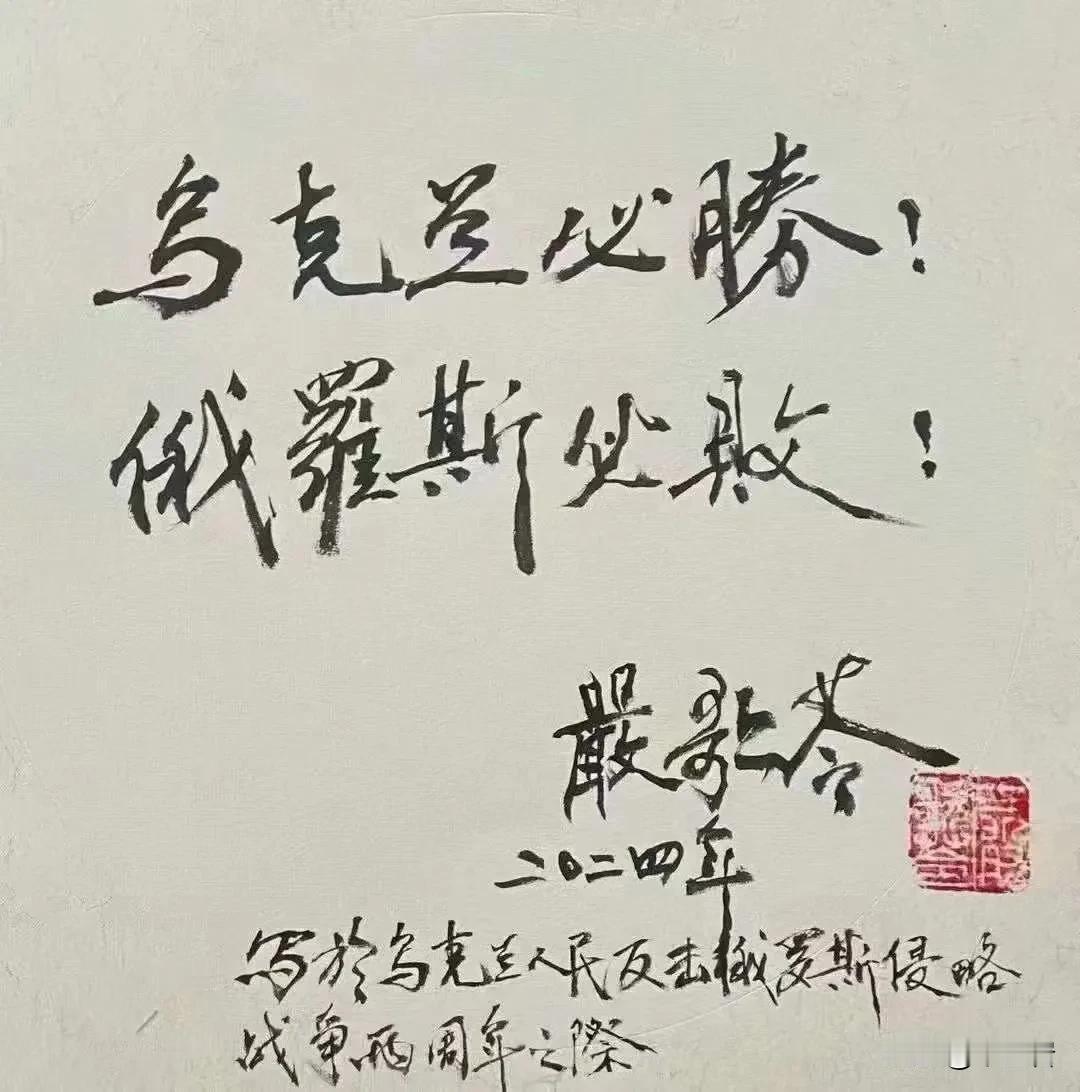 乌克兰必勝！
俄羅斯必敗！
嚴歌苓
二〇二四年
写於乌克兰人民反击俄罗斯侵略
战爭兩周年之際